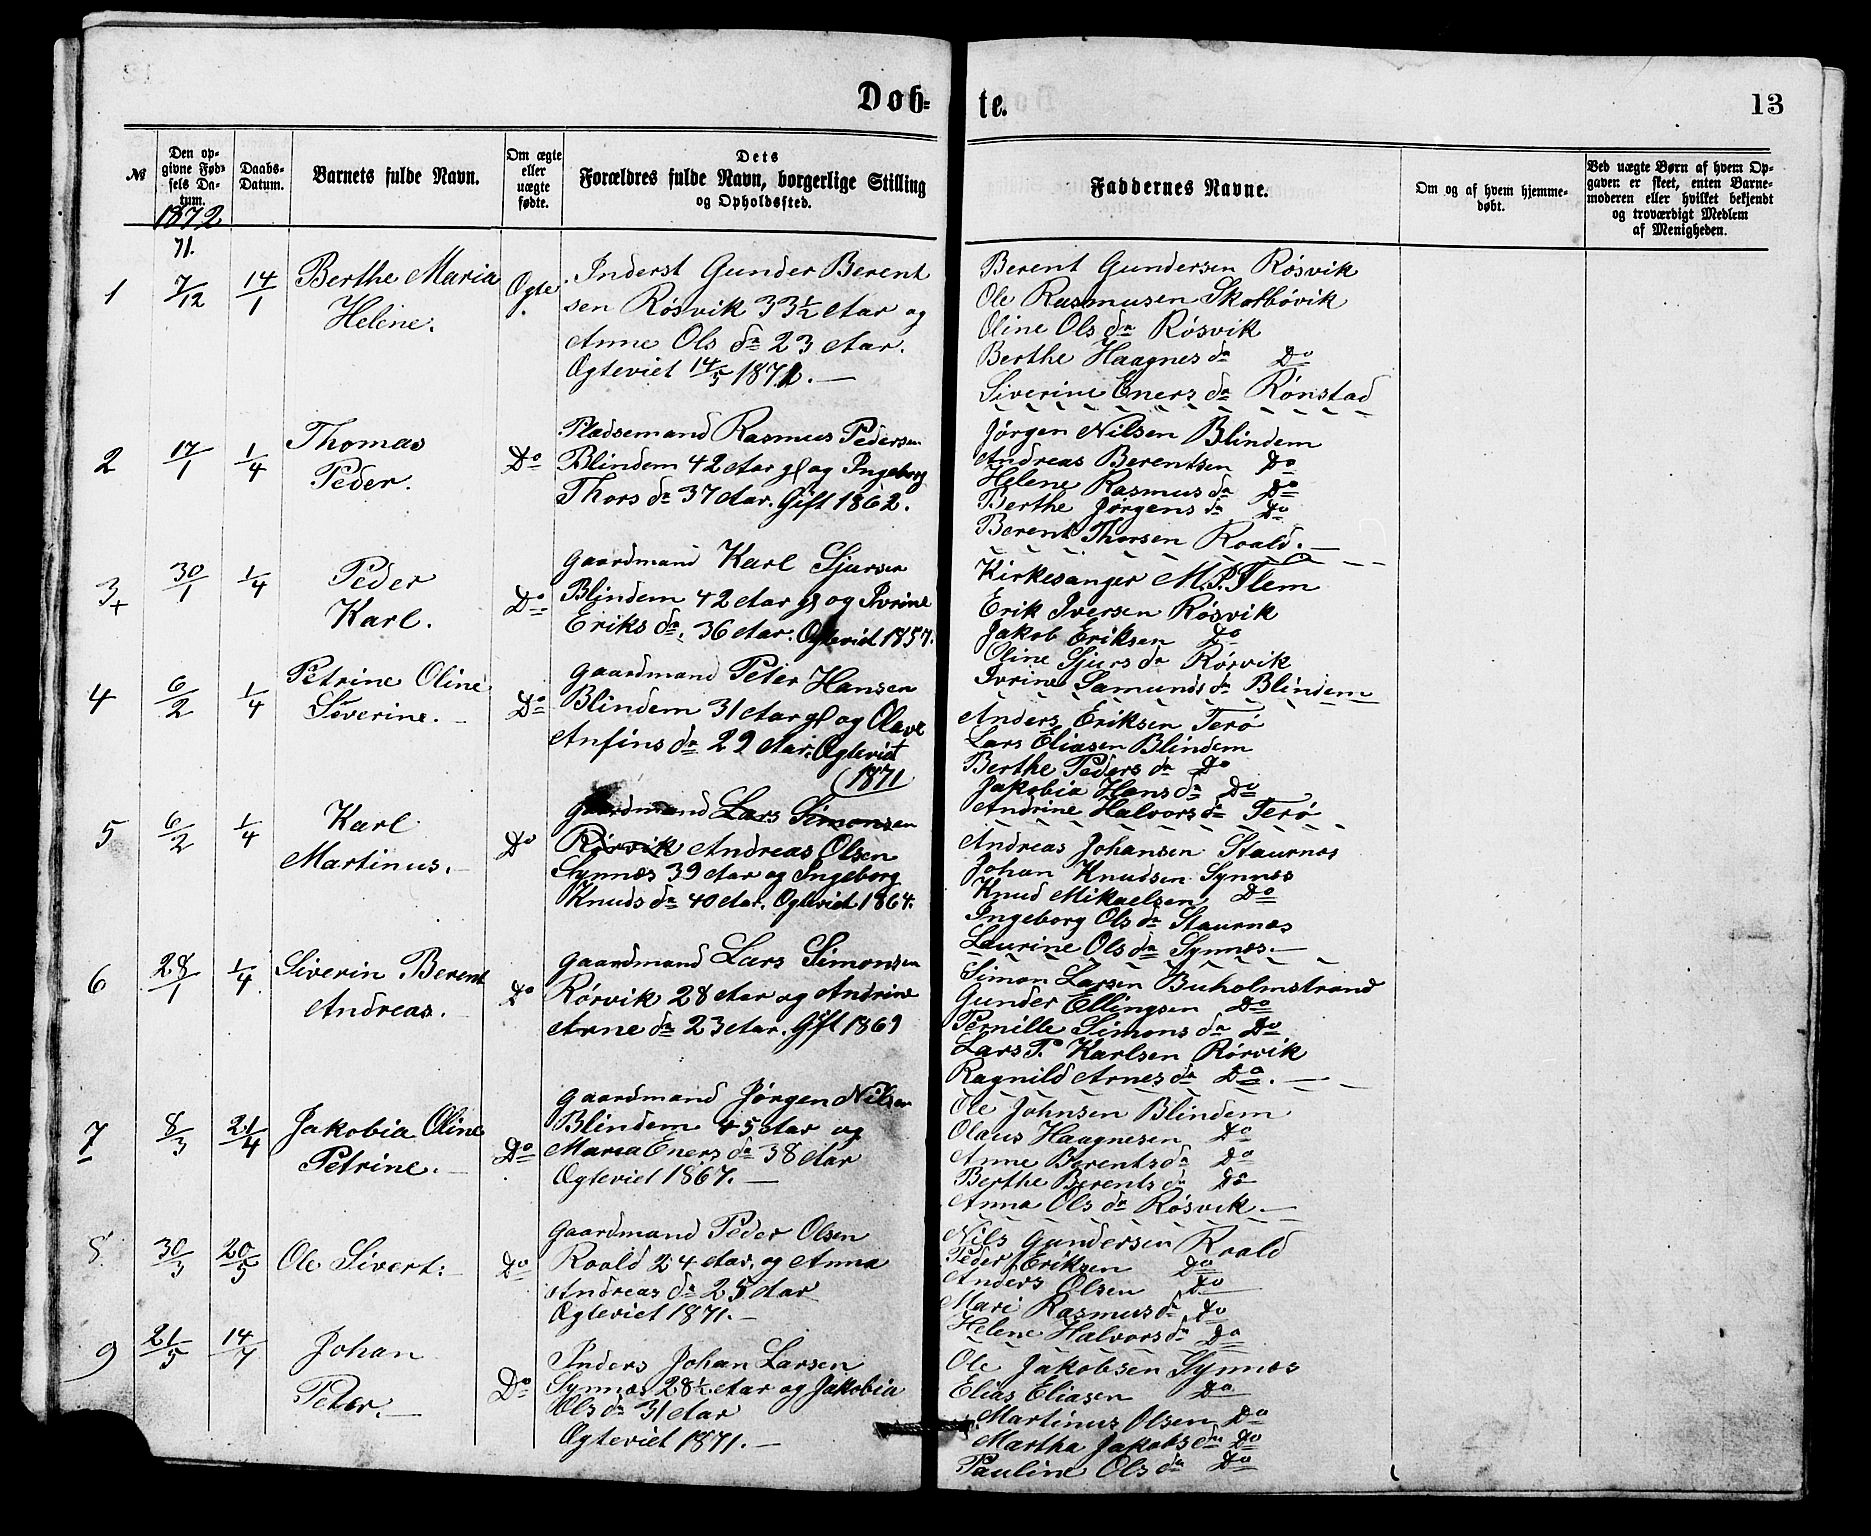 Døb-
te.
13
№
Den op-
givne Fød-
sels Da-
tum.
Daabs-
Datum.
Barnets fulde Navn.
Om ægte
eller
uægte
fødte.
Dets
Forældres fulde Navn, borgerlige Stilling
og Opholdssted.
Faddernes Navne.
Om og af hvem hjemme-
døbt.
Ved uægte Børn af hvem Op-
gaven er skeet, enten Barne-
moderen eller hvilket bekjendt
og troværdigt Medlem
af Menigheden.
1872
71.
1
7/12
14/1
Berthe Maria
Helene.
Ogte.
Inderst Gunder Berent
sen Rósvik 33½ Aar og
Anne Ols dr 23 Aar.
Ogteviet 14/5 1871.
Berent Gundersen Rósvik
Ole Rasmusen Skotbóvik
Oline Ols dr Rósvik
Berthe Haagnes dr Do
Siverine Eners dr Rónstad
2
17/1
1/4
Thomas
Peder.
Do
Pladsemand Rasmus Pedersen
Blindem 42 Aar gl og Ingeborg
Thors dr 37 Aar. Gift 1862.
Jórgen Nilsen Blindem
Andreas Berentsen Do
Helene Rasmus dr Do
Berthe Jórgens dr Do
Berent Thorsen Roald.
3+
30/1
1/4
Peder
Karl.
Do
Gaardmand Karl Sjursen
Blindem 42 Aar gl og Ivrine
Eriks dr, 36 Aar. Ogteviet 1857.
Kirkesanger M. P. Flem
Erik Iversen Rósvik
Jakob Eriksen Do
Oline Sjurs dr Rórvik
Ivrine Samunds dr Blindem
4
6/2
1/4
Petrine Oline
Severine.
Do
Gaardmand Peter Hansen
Blindem 31 Aar gl og Olave
Anfins dr 29 Aar. Ogteviet
1871
Anders Eriksen Teró
Lars Eliasen Blindem
Berthe Peders dr Do
Jakobia Hans dr Do
Andrine Halvors dr Teró
5
6/2
1/4
Karl
Martinus.
Do
Gaardmand Lars Simonsen
Rórvik Andreas Olsen
Synnes 39 Aar og Ingeborg
Knuds dr 40 Aar. Ogteviet 1864.
Andreas Johansen Staurnes
Johan Knudsen Synnes
Knud Mikaelsen Do
Ingeborg Ols dr Staurnes
Laurine Ols dr Synnes.
6
28/1
1/4
Siverin Berent
Andreas.
Do
Gaardmand Lars Simonsen
Rórvik 28 Aar og Andrine
Arne dr 23 Aar. Gift 1869
Simon Larsen Buholmstrand
Gunder Ellingsen Do
Pernille Simons dr Do
Lars P. Karlsen Rórvik
Ragnild Arnes dr Do.
7
8/3
21/4
Jakobia Oline
Petrine.
Do
Gaardmand Jórgen Nilsen
Blindem 45 Aar og
Maria Eners dr 38 Aar
Ogteviet 1867.
Ole Johnsen Blindem
Olaus Haagnesen Do
Anne Berents dr Do
Berthe Berents dr Do
Anna Ols dr Rósvik.
8
30/3
20/5
Ole Sivert.
Do
Gaardmand Peder Olsen
Roald 24 Aar, og Anna
Andreas dr 25 Aar
Ogteviet 1871.
Nils Gundersen Roald
Peder Eriksen Do
Anders Olsen Do
Mari Rasmus dr Do
Helene Halvors dr Do
9
21/5
14/7
Johan
Peter.
Do
Inders Johan Larsen
Synnes 28½ Aar og Jakobia
Ols dr 31 Aar
Ogteviet 1871.
Ole Jakobsen Synnes
Elias Eliasen Do
Martinus Olsen Do
Martha Jakobs dr Do
Pauline Ols dr Do